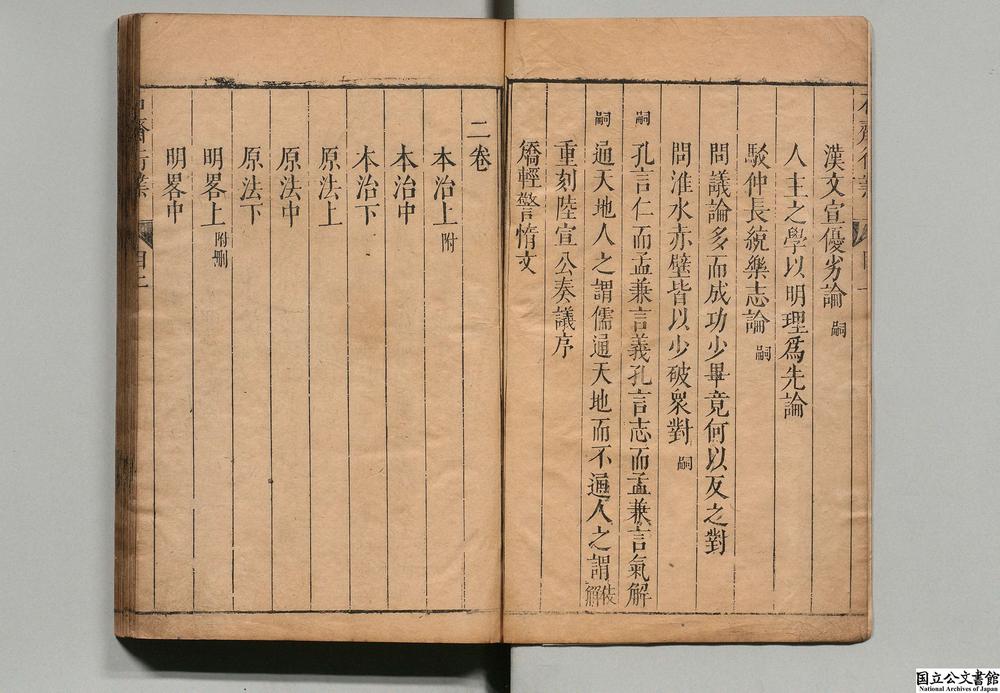 漢文宣優劣論 嗣
人主之學以明理爲先論
駁仲長統樂志論 嗣
問議論多而成功少畢竟何以反之對
問淮水赤壁皆以少破衆對 嗣
嗣 孔言仁而孟兼言義孔言志而孟兼言氣解
嗣 通天地人之謂儒通天地而不通人之謂伎解
重刻陸宣公奏議序
矯輕警惰文
二卷
本治上 附
本治中
本治下
原法上
原法中
原法下
明畧上 附刪
明畧中
国立公文書館
National Archives of Japan